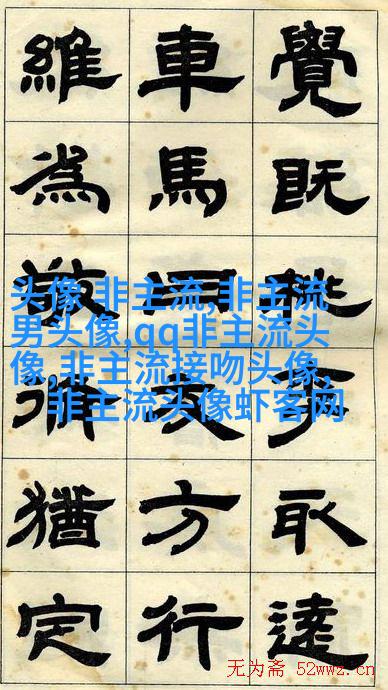 覺既取遠
車馬友方行
維為猶定
头像 非主流,非主流
男头像,qq非主流头
像,非主流接吻头像,
非主流头像虾客网
无为斋 52wwz.cn